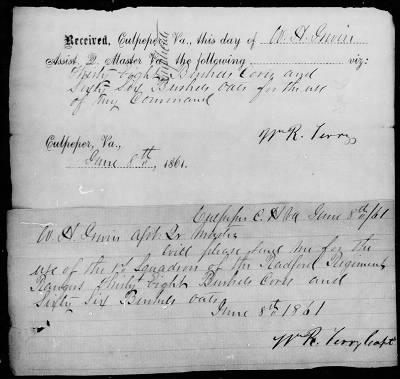 Received, Culpeper, Va., this day of W. H. Irwin
Assist. Q. Master Va. the following viz:
Thirty Eight Bushels Corn and
Sixty Six Bushels Oats for the use
of my Command
Wm R. Terry
Culpeper, Va.,
June 8th, 1861.
Culpeper C. H. Va June 8th/61
W. H. Irwin Asst. Qr Master
Will please send me for the
use of the 1st Squadron of the Radford Regiment
Rangers Thirty Eight Bushels Corn and
Sixty Six Bushels Oats
June 8th 1861
Wm R. Terry Capt